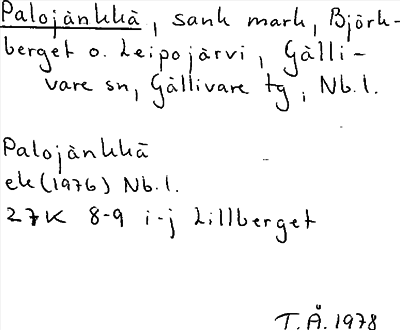 Palojänkkä, sank mark, Björk-
berget o. Leipojärvi, Gälli-
vare sn, Gällivare tg, Nb.l.
Palojänkkä
ek (1976) Nb.l.
27K 8-9 i-j Lillberget
T.Å. 1978